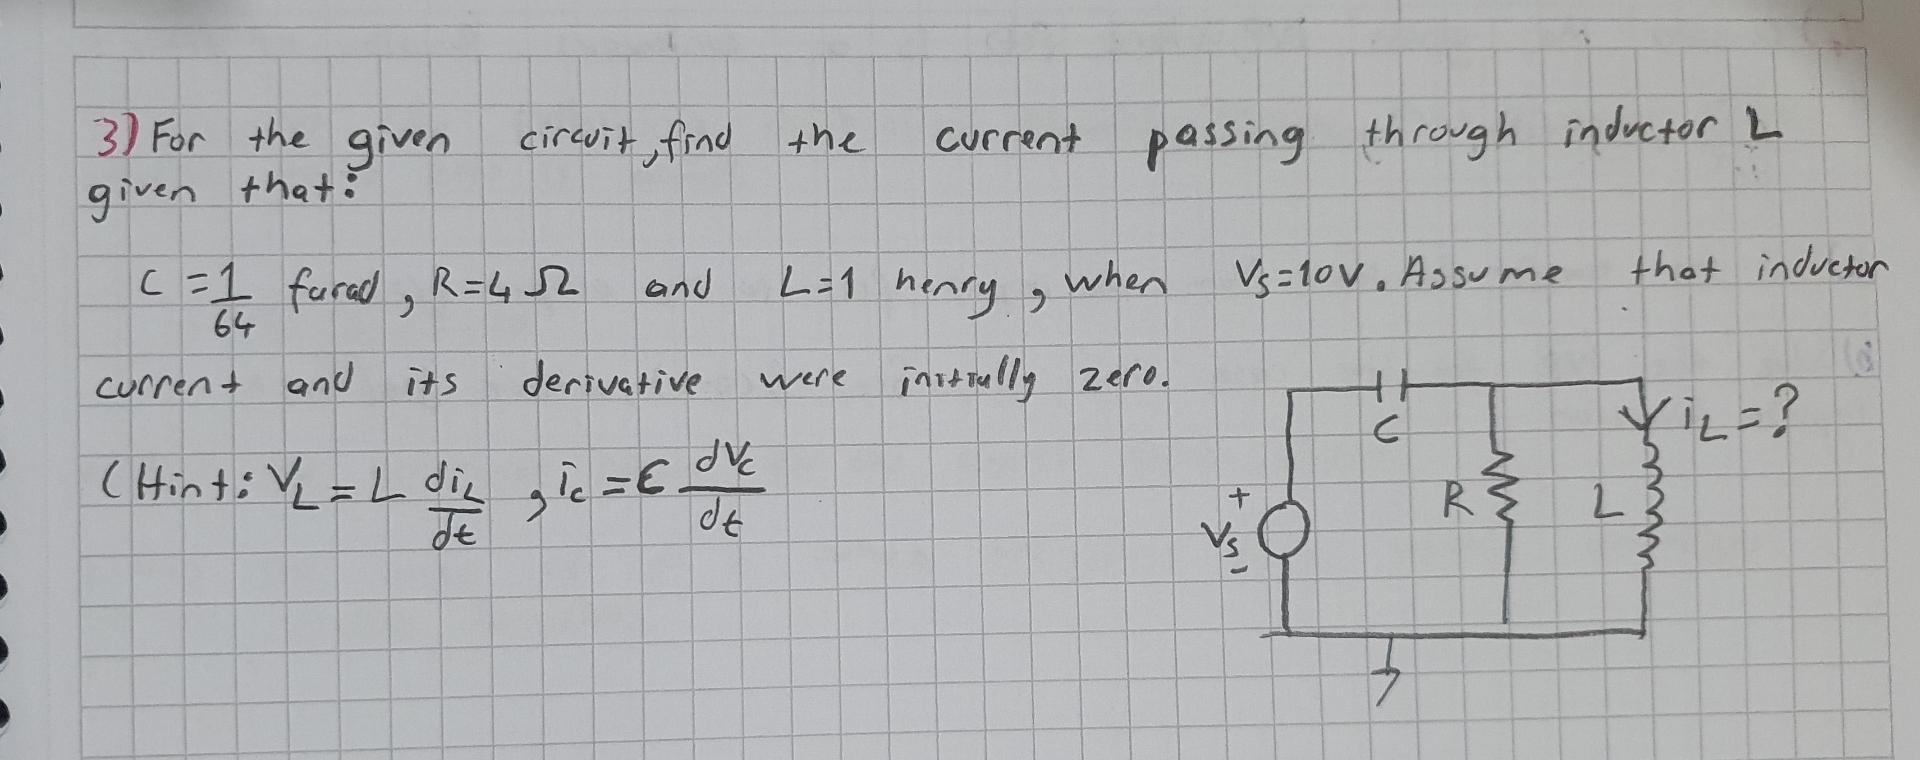 3) For the given circuit, find the current passing through inductor L
given that:
C = 1/64 farad, R=4 Ω and L=1 henry, when Vs=10V. Assume that inductor
current and its derivative were initially zero.
(Hint: VL = L diL/dt, ic = C dVc/dt
C
iL = ?
R
L
+
Vs
-